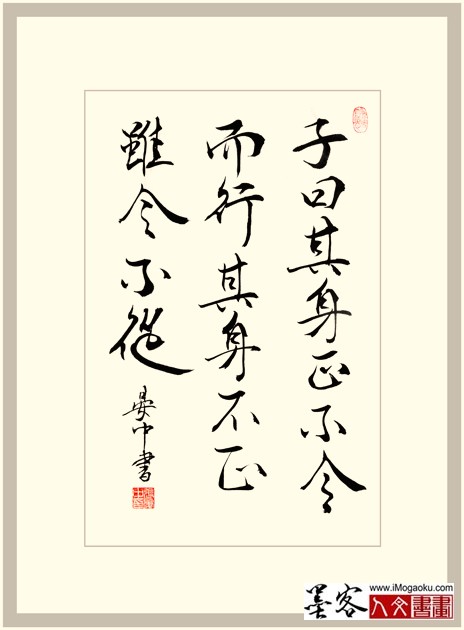 子曰其身正不令
而行其身不正
雖令不從
晏中書
墨客
www.iMogaoku.com
人文書畫